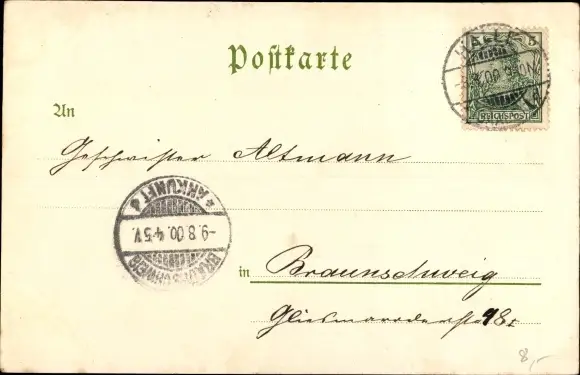 Postkarte
HALLE
5
REICHSPOST
An
Geschwister Altmann
* ANKUNFT *
-9.8.00. 4-5V.
BRAUNSCHWEIG
in Braunschweig
Gliesmaroderstr 48I
8,-